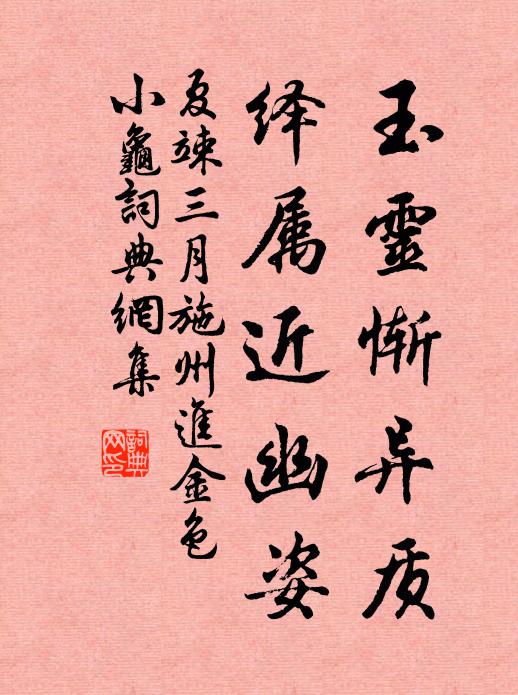 玉靈惭异质
绎属近幽姿
夏竦三月施州進金色
小龜詞典網集
詞典網印